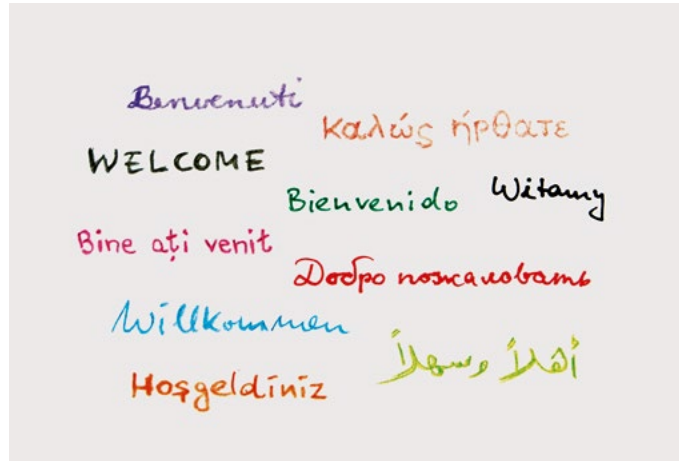 Benvenuti
Καλώς ήρθατε
WELCOME
Bienvenido
Witamy
Bine ați venit
Добро пожаловать
Willkommen
أهلاً وسهلاً
Hoşgeldiniz